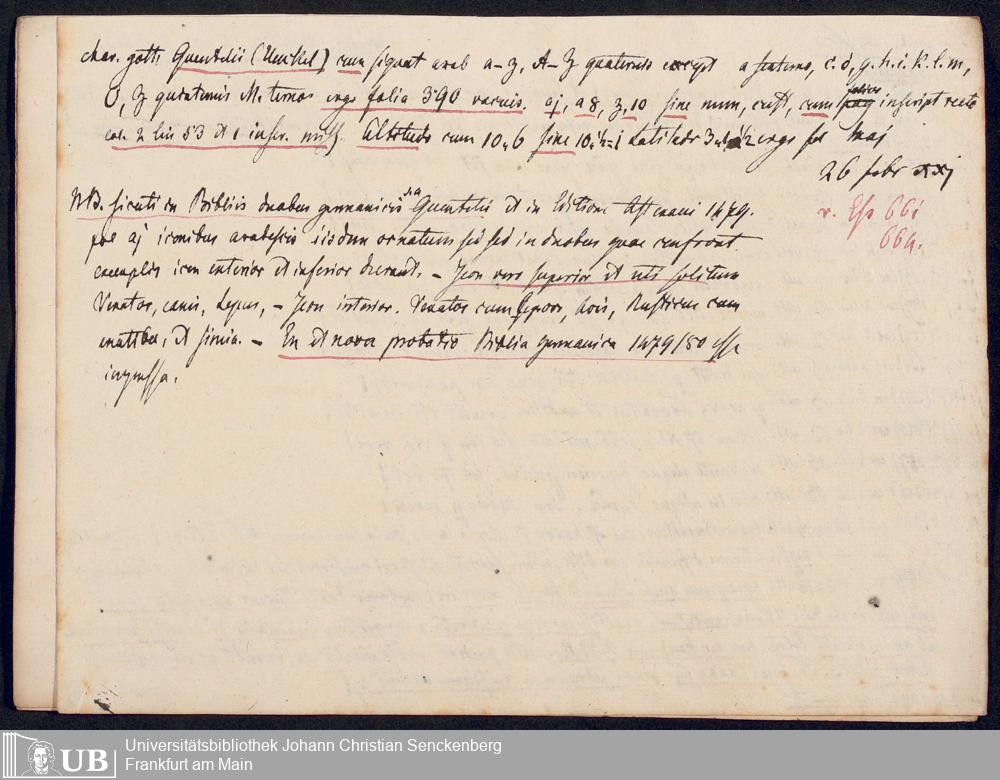 char. goth. Quentelii (Unckel) cum signat arab a–z, A–Z quaternis except a sexterno, c. d, g. h. i. k. l. m,
O, Z quaternis M. ternos ergo folia 390 vacuis. aj, a 8, z, 10 sine num, cust, cum folior inscript recto
col. 2 lin 53 et 1 inscr. Altitudo cum 10,6 sine 10 Latitudo ergo fol maj
26 febr xxj
NB. sicuti in Bibliis duabus germanicis Quentelii et in Editione 1479.
v. Ess 661
fol aj iconibus arabescis iisdem ornatum sed in duobus quae confront
664.
exemplis icon interior et inferior deerant. – Icon vero superior et uti solitum
Venator, canis, Lepus, – Icon interior. Venator cum Lepore, bois, Rusticus cum
et simia. – En et nova probatio Biblia germanica 1479/80 esse
impressa.
UB
Universitätsbibliothek Johann Christian Senckenberg
Frankfurt am Main